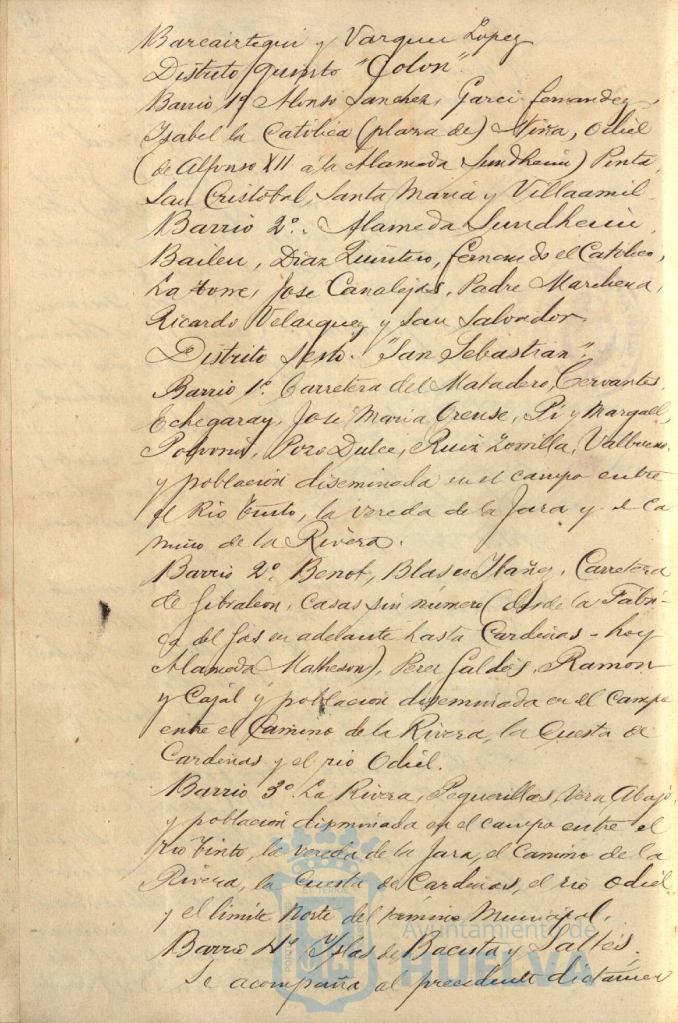 Barcaiztegui y Vazquez Lopez
Distrito quinto "Colon".
Barrio 1º Alonso Sanchez, Garci Fernandez,
Isabel la Católica (plaza de) Niña, Odiel
(de Alfonso XII a la Alameda Sundheim) Pinta,
San Cristobal, Santa Maria y Villaamil.
Barrio 2º. Alameda Sundheim,
Bailen, Diaz Quintero, Fernando el Catolico,
La Torre, Jose Canalejas, Padre Marchena,
Ricardo Velazquez y San Salvador.
Distrito Sesto. "San Sebastian".
Barrio 1º. Carretera del Matadero, Cervantes,
Echegaray, Jose Maria Orense, Pi y Margall,
Pozo Dulce, Ruiz Zorrilla, Valbuena
y población diseminada en el campo entre
el Rio Tinto, la vereda de la Jara y el ca
mino de la Rivera.
Barrio 2º. Benot, Blasco Ibañez, Carretera
de Gibraleon, casas sin número (desde la Fábri-
ca del Gas en adelante hasta Cardeñas - hoy
Alameda Matheson), Perez Galdós, Ramon
y Cajál y población diseminada en el campo
entre el Camino de la Rivera, la Cuesta de
Cardeñas y el rio Odiel.
Barrio 3º. La Rivera, Peguerillas, Vera Abajo,
y población diseminada en el campo entre el
Rio Tinto, la vereda de la Jara, el Camino de la
Rivera, la Cuesta de Cardeñas, el rio Odiel
y el limite Norte del término Municipal.
Barrio 4º Yslas de Bacuta y Saltés.
Se acompaña al precedente dictamen
Ayuntamiento de
HUELVA